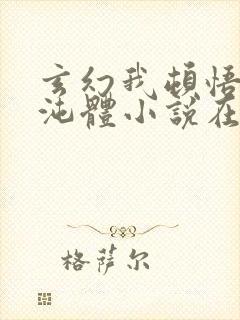 玄幻我頓悟
沌體小說在
格萨尔